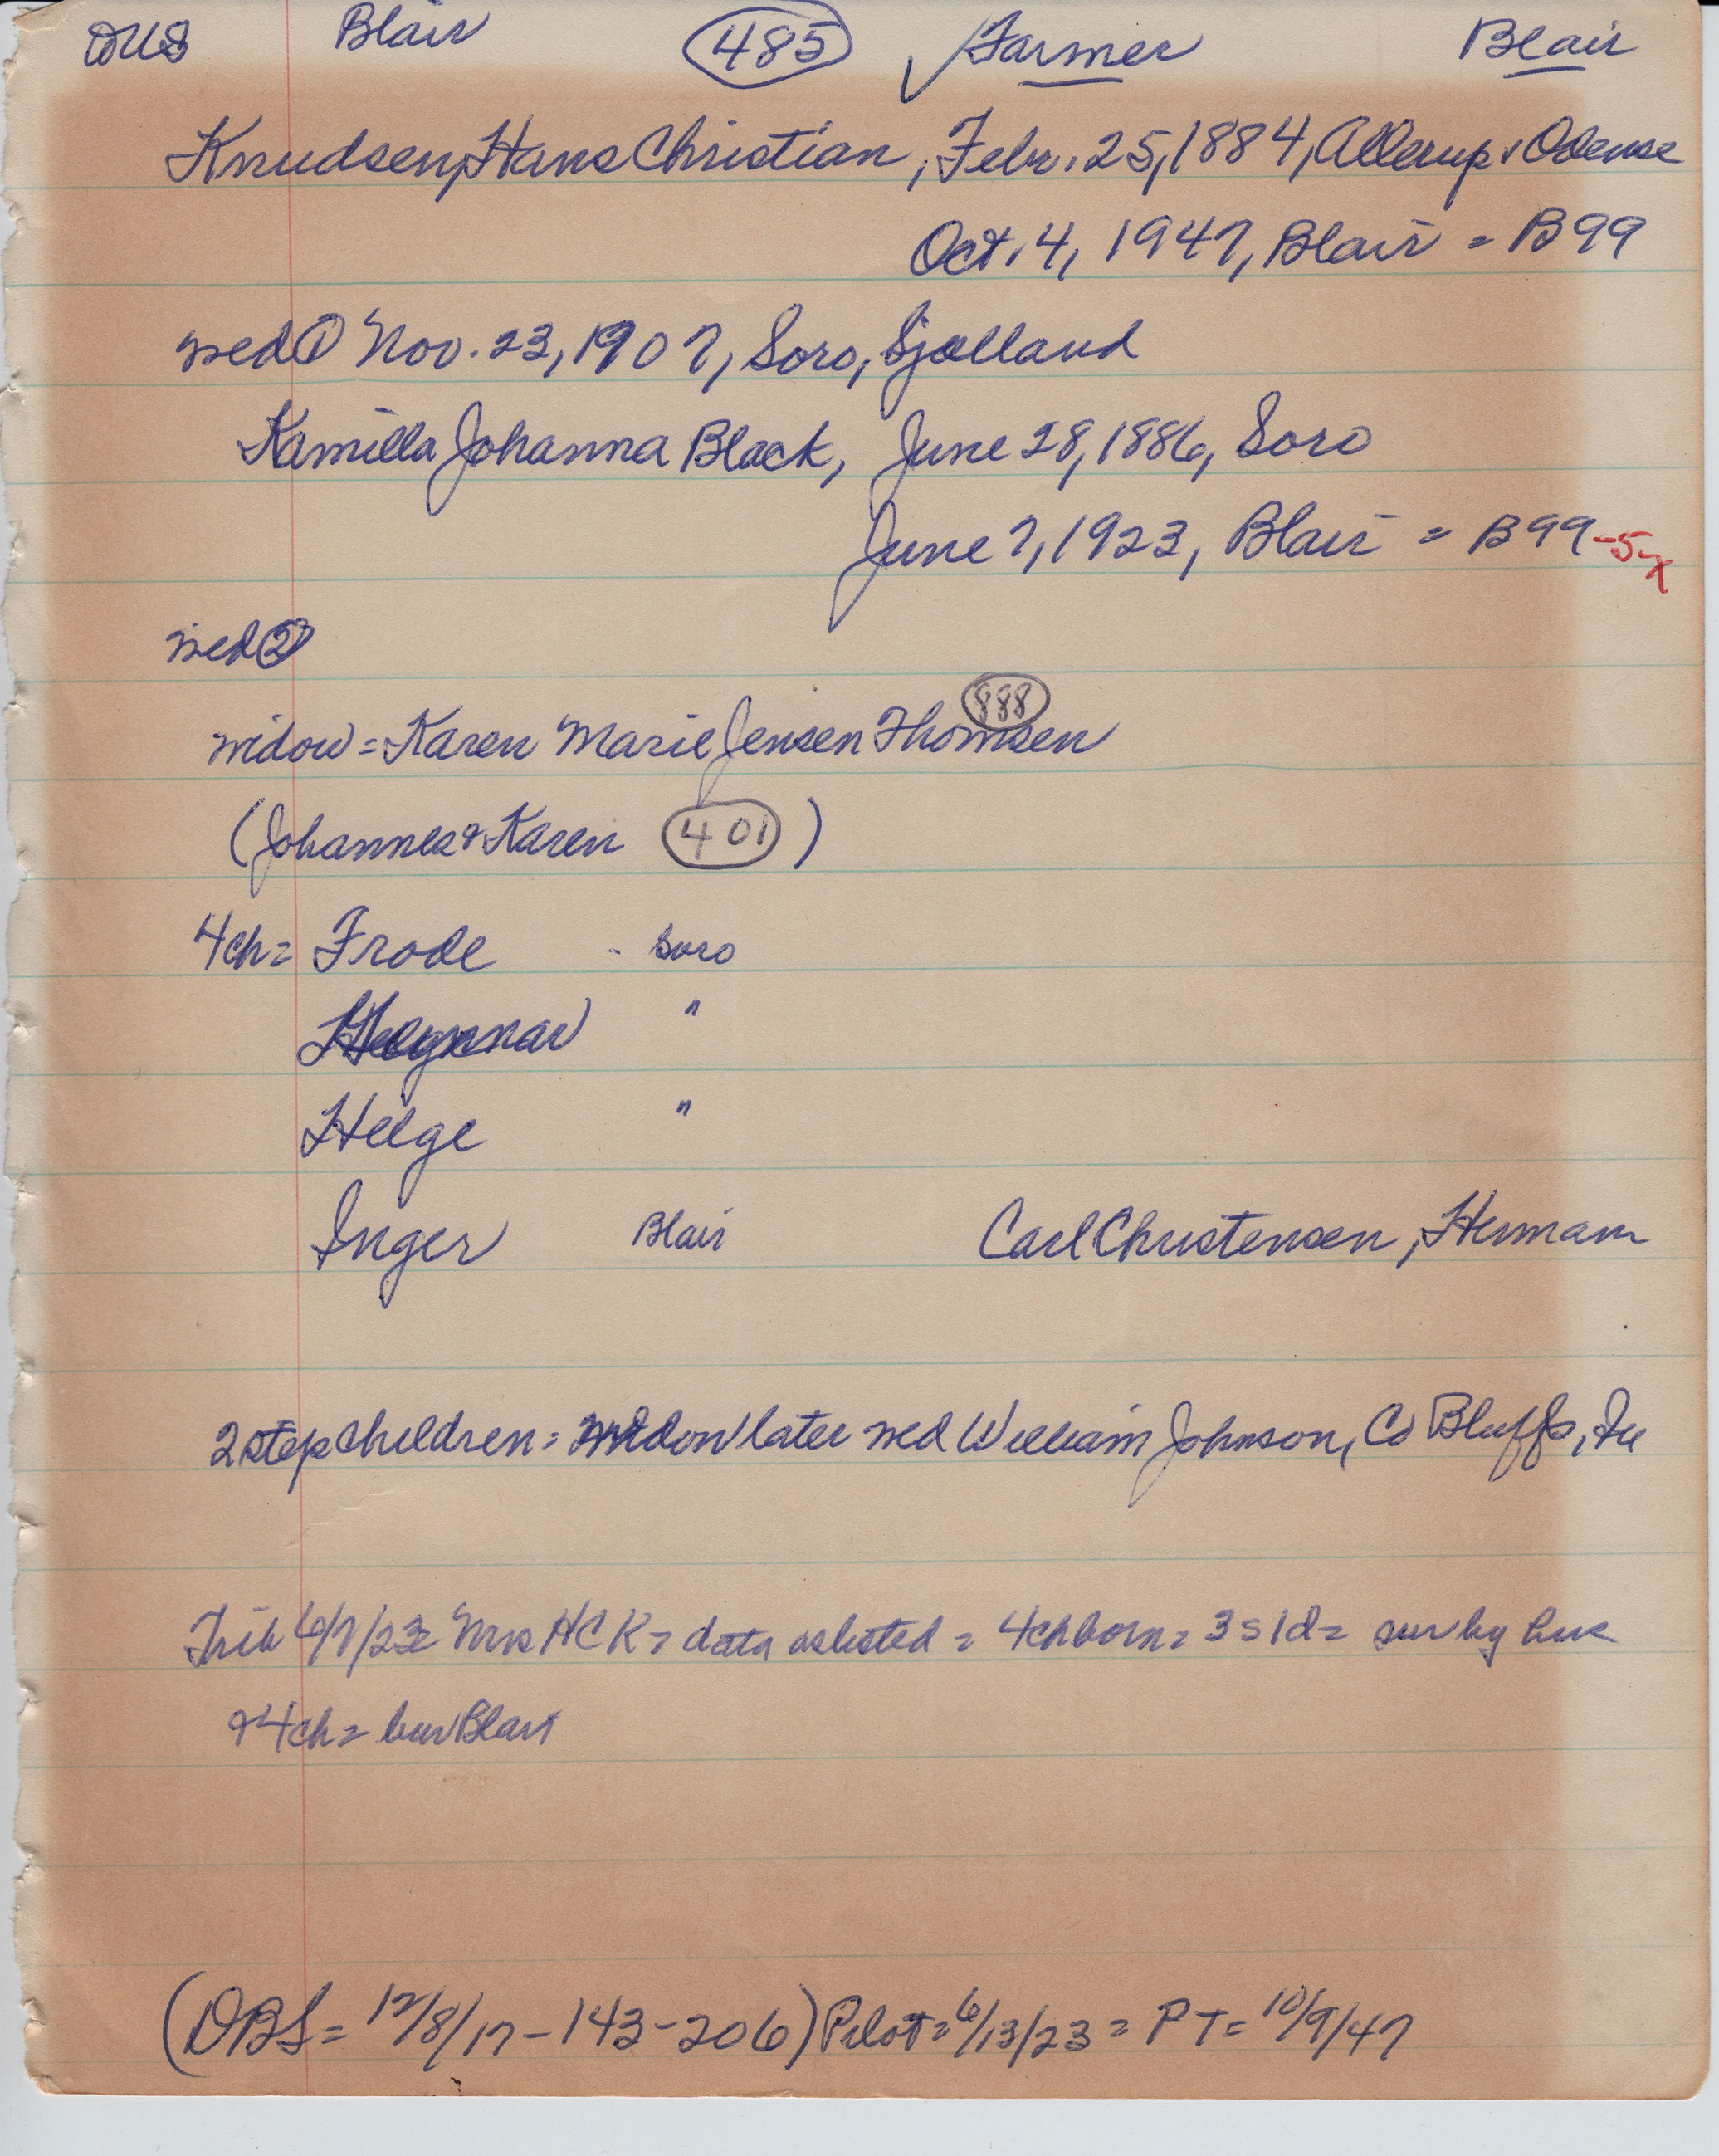 Blair 485 √ Farmer Blair
Knudsen, Hans Christian, Febr. 25, 1884, Allerup v Odense
Oct. 4, 1947, Blair = B99
med ① Nov. 23, 1907, Soro, Sjælland
Kamilla Johanna Black, June 28, 1886, Soro
June 7, 1923, Blair = B99 -5-x
med ②
888
widow = Karen Marie Jensen Thomsen
(Johannes & Karen 401)
4ch = Frode - Soro
"
Helge "
Inger Blair Carl Christensen, Herman
2 stepchildren = widow later med William Johnson, Co Bluffs, Ia
Trib 6/7/23 = Mrs HCK = data as listed = 4 ch born = 3 s 1 d = sur by hus
& 4ch = bur Blair
(DBS = 12/8/17 - 143-206) Pilot = 6/13/23 = PT = 10/9/47